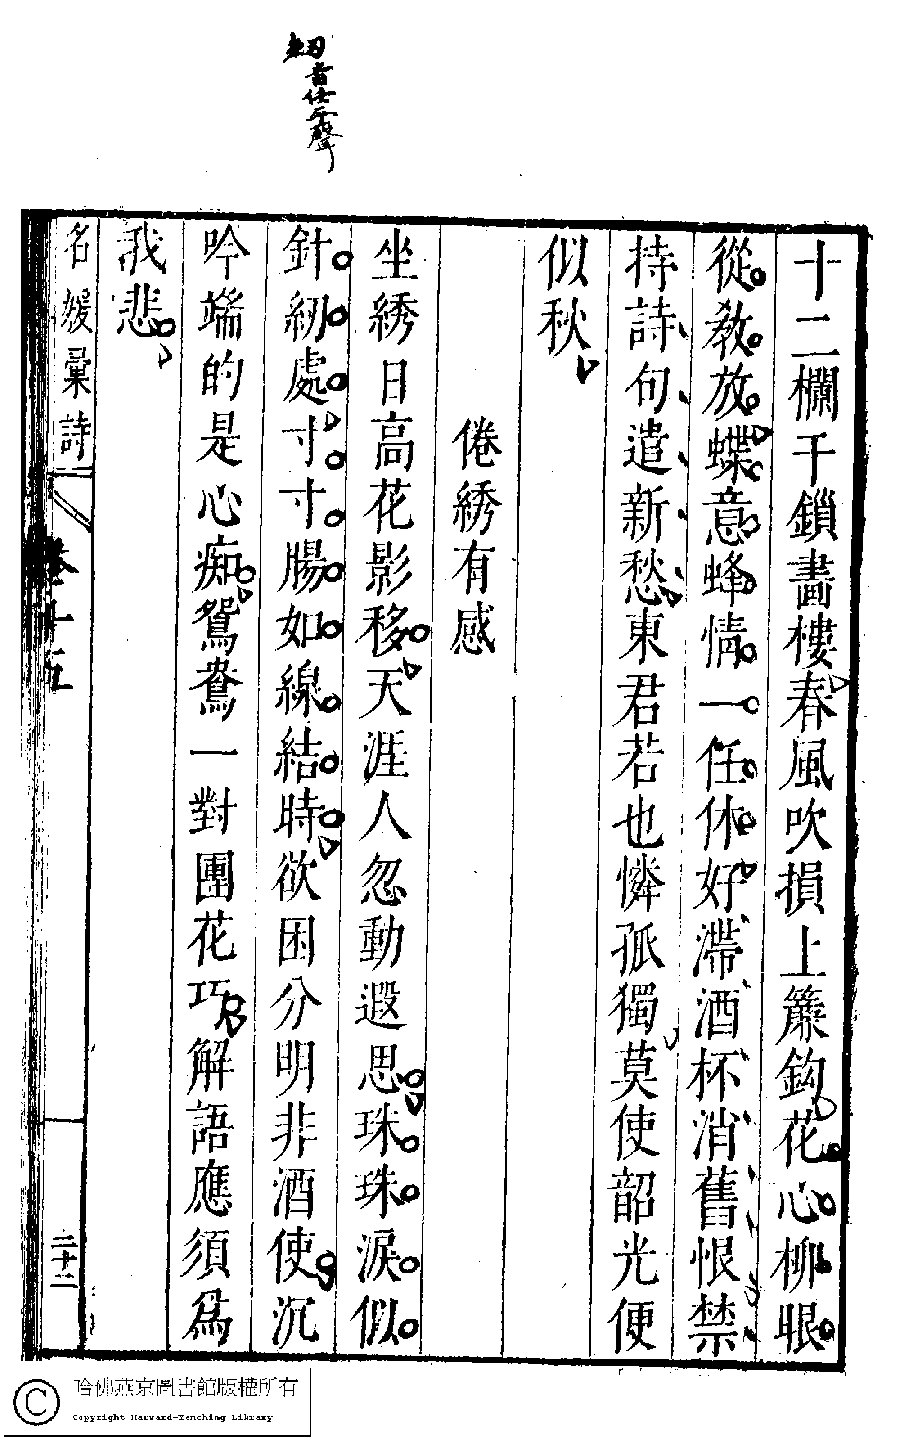 紉音仕平聲
十二欄干鎖畫樓春風吹損上簾鈎花心柳眼
從教放蝶意蜂情一任休好滯酒杯消舊恨禁
持詩句遣新愁東君若也憐孤獨莫使韶光便
似秋
倦綉有感
坐綉日高花影移天涯人忽動遐思珠珠淚似
針紉處寸寸腸如線結時欲困分明非酒使沉
吟端的是心痴鴛鴦一對團花巧解語應須爲
我悲
名媛彙詩
卷十五
二十二
哈佛燕京圖書館版權所有
Copyright Harvard-Yenching Library